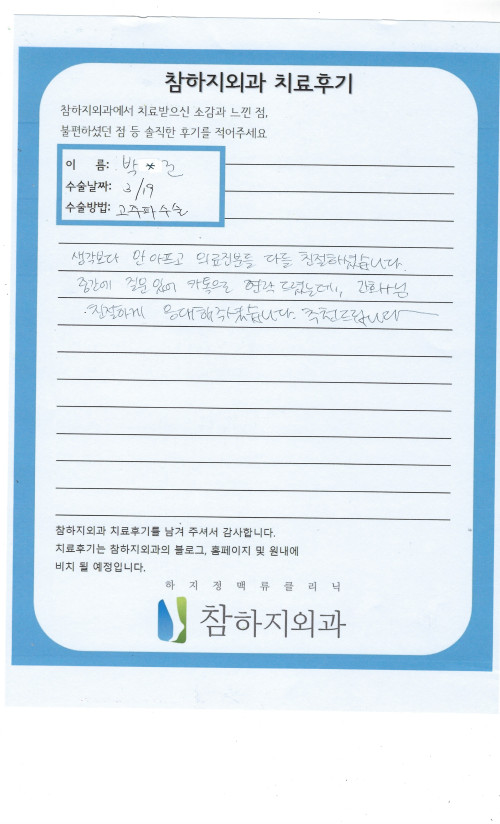 참하지외과 치료후기
참하지외과에서 치료받으신 소감과 느낀 점,
불편하셨던 점 등 솔직한 후기를 적어주세요
이 름: 박 * 근
수술날짜: 3/19
수술방법: 고주파수술
생각보다 안 아프고 의료진분들 다들 친절하셨습니다.
중간에 질문 있어 카톡으로 연락 드렸는데, 간호사님
친절하게 응대해주셨습니다. 추천드립니다
참하지외과 치료후기를 남겨 주셔서 감사합니다.
치료후기는 참하지외과의 블로그, 홈페이지 및 원내에
비치 될 예정입니다.
하지정맥류클리닉
참하지외과